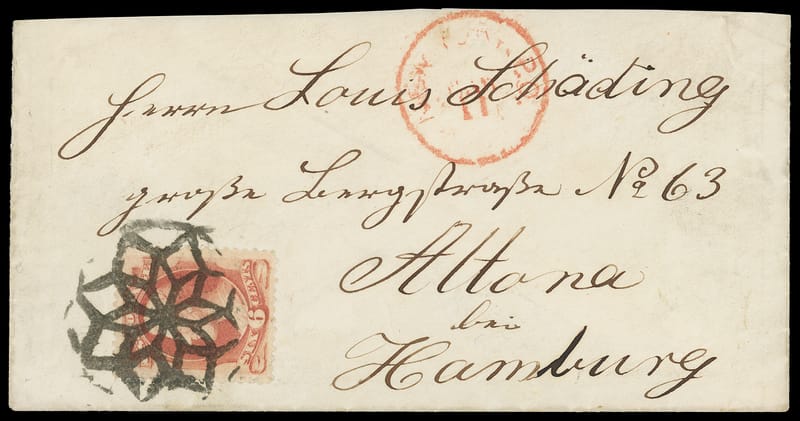 Herrn Louis Schäding
große Bergstraße No 63
Altona
bei
Hamburg
NEW
6